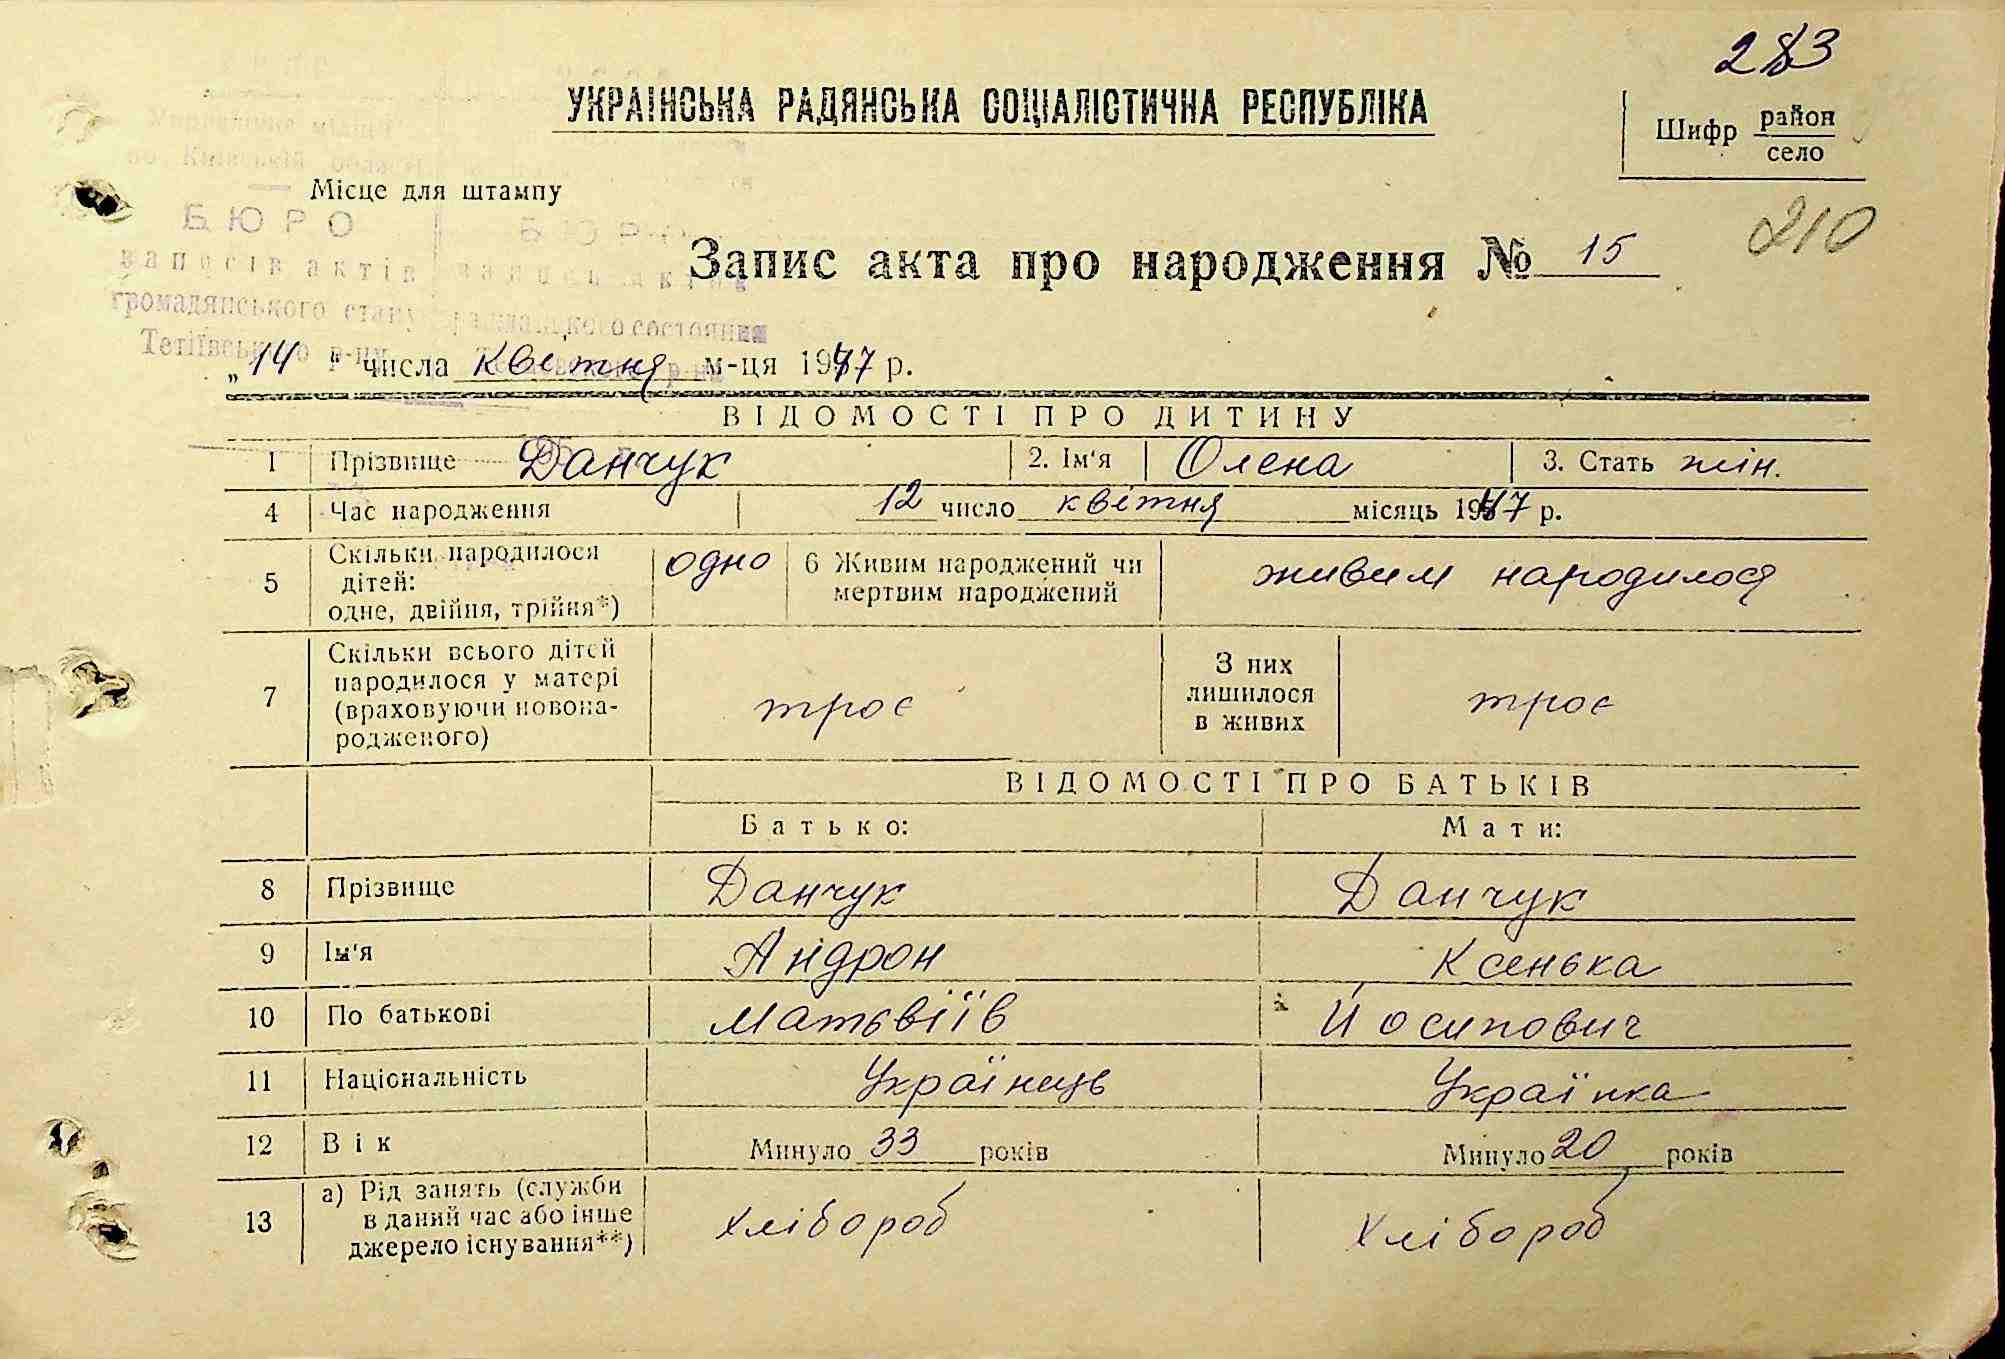 283
УКРАЇНСЬКА РАДЯНСЬКА СОЦІАЛІСТИЧНА РЕСПУБЛІКА
Шифр район
село
Місце для штампу
210
БЮРО
записів актів
громадянського стану
Тетіївського р-ну
Запис акта про народження № 15
„14" числа квітня м-ця 1947 р.
ВІДОМОСТІ ПРО ДИТИНУ
1 Прізвище Данчук 2. Ім'я Олена 3. Стать жін.
4 Час народження 12 число квітня місяць 1947 р.
5 Скільки народилося дітей: одне, двійня, трійня*) одно 6 Живим народжений чи мертвим народжений живим народилося
7 Скільки всього дітей народилося у матері (враховуючи новонародженого) троє З них лишилося в живих троє
ВІДОМОСТІ ПРО БАТЬКІВ
Батько: Мати:
8 Прізвище Данчук Данчук
9 Ім'я Андрон Ксенька
10 По батькові Матьвіїв Йосипович
11 Національність Українець Українка
12 Вік Минуло 33 років Минуло 20 років
13 а) Рід занять (служби в даний час або інше джерело існування**) хлібороб хлібороб